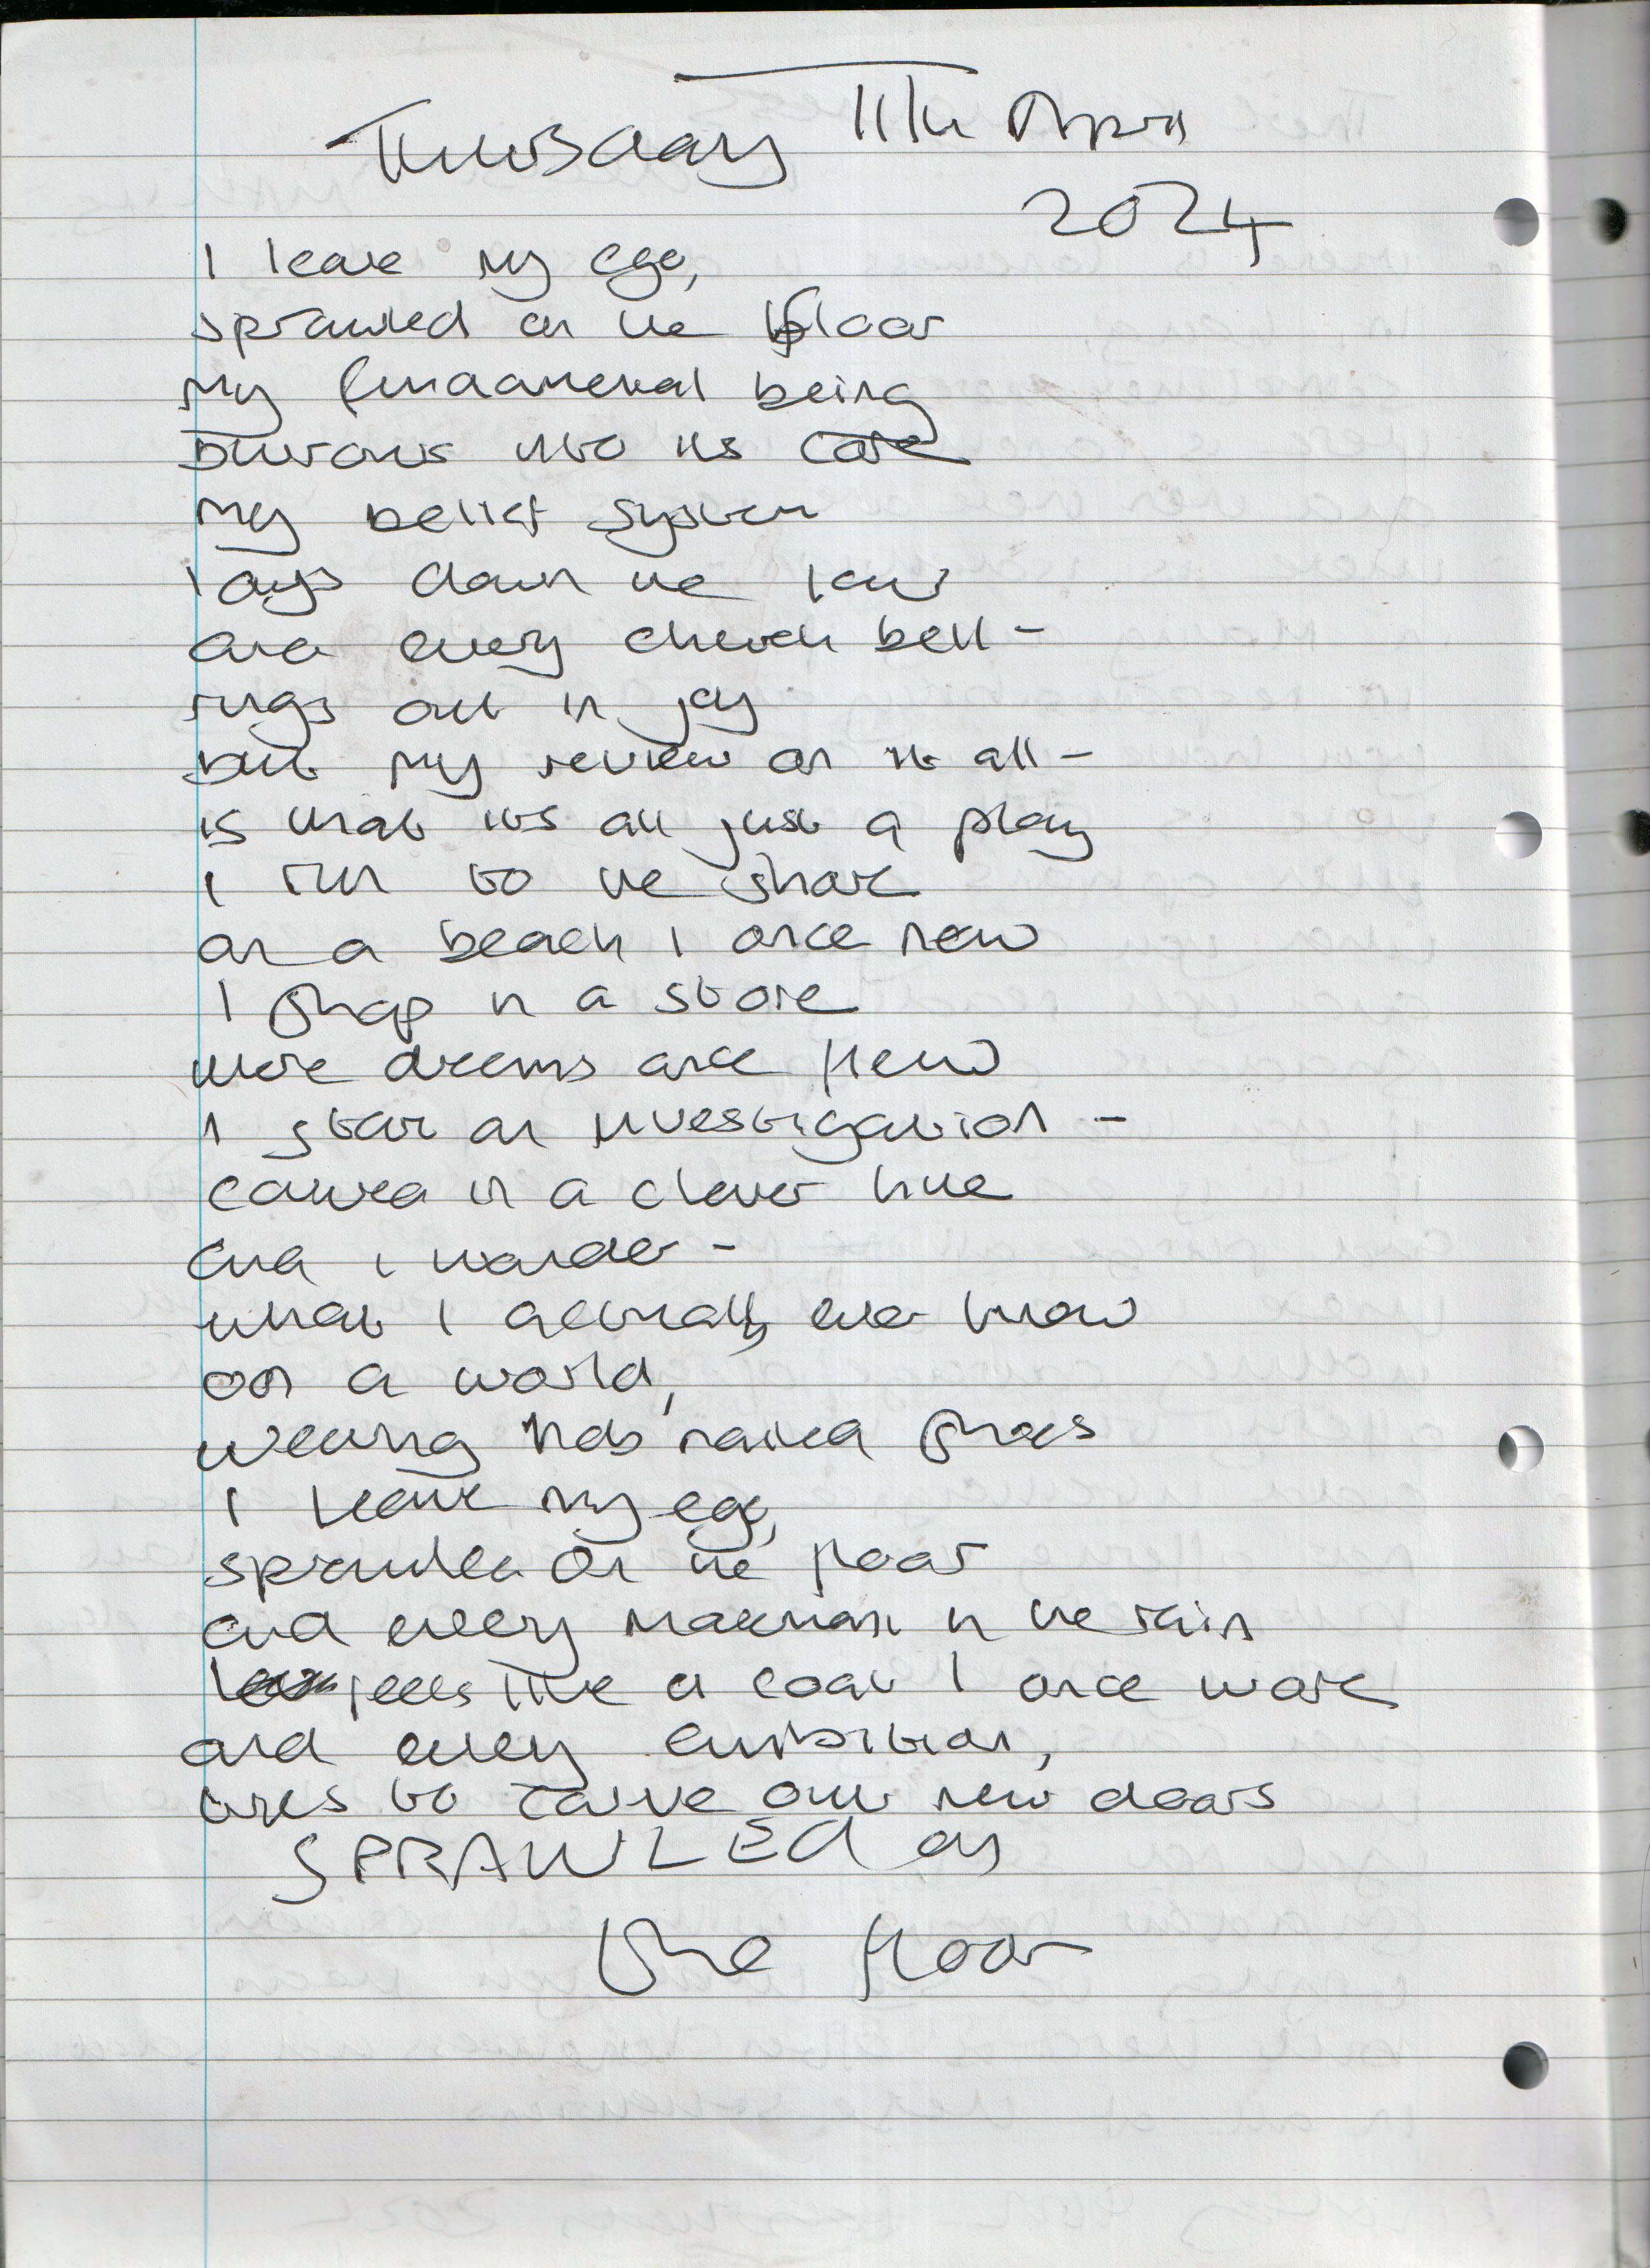 Thursday 11th April
2024
I leave my ego,
sprawled on the floor
my fundamental being
burrows into its core
my belief system
lays down the law
and every church bell -
rings out in joy
but my review on it all -
is that its all just a play
I run to the shore
on a beach I once new
I shop in a store
were dreams once flew
I star an investigation -
coured in a clever hue
and I wonder -
what I actually ever know
on a world,
wearing hob nailed shoes
I leave my ego,
sprawled on the floor
and every in the rain
feels like a coat I once wore
and every ambition,
tries to carve out new doors
SPRAWLED on
the floor